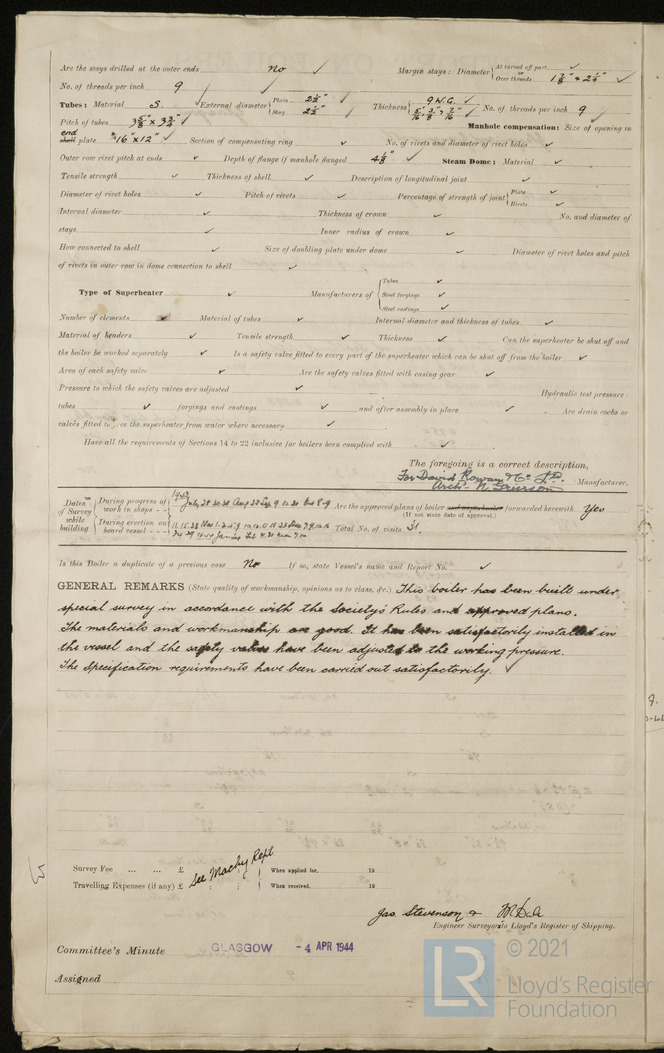 Are the stays drilled at the outer ends No ✓ Margin stays: Diameter { At turned off part ✓ or Over threads 1 7/8" & 2 1/4" ✓
No. of threads per inch 9 ✓
Tubes: Material S. ✓ External diameter { Plain 2 1/2" Stay 2 1/2" ✓ Thickness { 9 W.G. ✓ 5/16", 3/8", 7/16" No. of threads per inch 9 ✓
Pitch of tubes 3 5/8" x 3 3/4" ✓ Manhole compensation: Size of opening in
end shell plate 16" x 12" ✓ Section of compensating ring ✓ No. of rivets and diameter of rivet holes ✓
Outer row rivet pitch at ends ✓ Depth of flange if manhole flanged 4 1/8" ✓ Steam Dome: Material ✓
Tensile strength ✓ Thickness of shell ✓ Description of longitudinal joint ✓
Diameter of rivet holes ✓ Pitch of rivets ✓ Percentage of strength of joint { Plate ✓ Rivets ✓
Internal diameter ✓ Thickness of crown ✓ No. and diameter of
stays ✓ Inner radius of crown ✓
How connected to shell ✓ Size of doubling plate under dome ✓ Diameter of rivet holes and pitch
of rivets in outer row in dome connection to shell ✓
Type of Superheater ✓ Manufacturers of { Tubes ✓ Steel forgings ✓ Steel castings ✓
Number of elements ✓ Material of tubes ✓ Internal diameter and thickness of tubes ✓
Material of headers ✓ Tensile strength ✓ Thickness ✓ Can the superheater be shut off and
the boiler be worked separately ✓ Is a safety valve fitted to every part of the superheater which can be shut off from the boiler ✓
Area of each safety valve ✓ Are the safety valves fitted with easing gear ✓
Pressure to which the safety valves are adjusted ✓ Hydraulic test pressure:
tubes ✓ forgings and castings ✓ and after assembly in place ✓ Are drain cocks or
valves fitted to free the superheater from water where necessary ✓
Have all the requirements of Sections 14 to 22 inclusive for boilers been complied with ✓
The foregoing is a correct description,
For David Rowan & Co Ltd. Manufacturer.
Dates of Survey while building { During progress of work in shops - - 1943 July 28 30 Are the approved plans of boiler and superheater forwarded herewith Yes
(If not state date of approval.)
During erection on board vessel - - - Total No. of visits 31.
Is this Boiler a duplicate of a previous case No If so, state Vessel's name and Report No. ✓
GENERAL REMARKS (State quality of workmanship, opinions as to class, &c.) This boiler has been built under
special survey in accordance with the Society's Rules and approved plans.
The materials and workmanship are good. It has been satisfactorily installed in
the vessel and the safety valves have been adjusted to the working pressure.
The Specification requirements have been carried out satisfactorily. ✓
Survey Fee ... ... £ : : When applied for, 19
See Machy Rept
Travelling Expenses (if any) £ : : When received, 19
Jas. Stevenson &
Engineer Surveyors to Lloyd's Register of Shipping.
Committee's Minute GLASGOW - 4 APR 1944
Assigned
© 2021
LR Lloyd's Register
Foundation